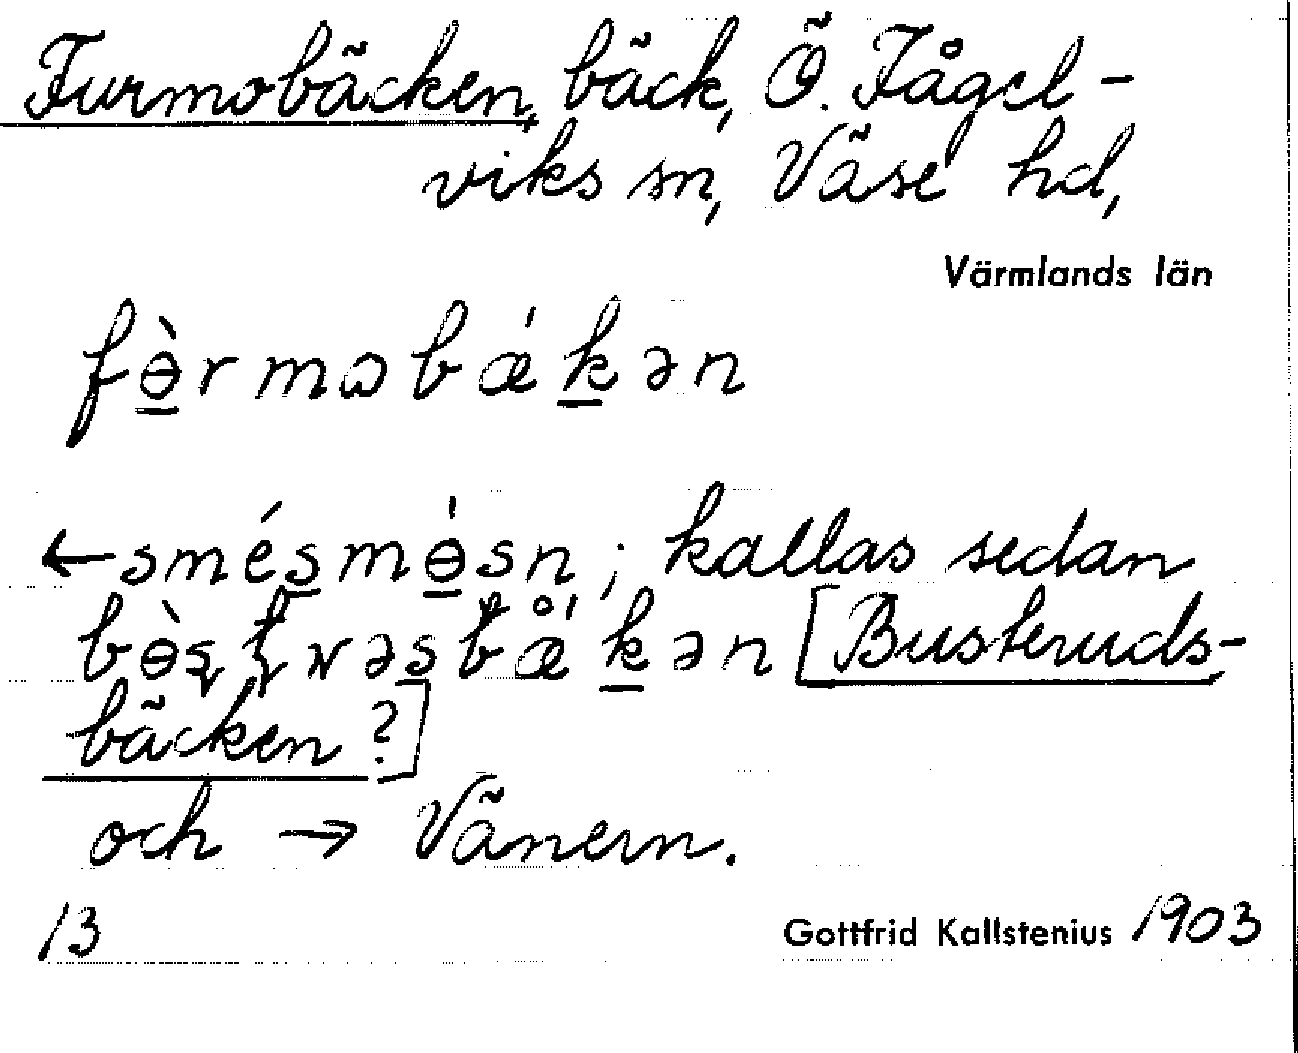 Furmobäcken, bäck, Ö. Fågel-
viks sn, Väse hd,
Värmlands län
fɵ̠̀rmɷbǽk̠ən
←smés̠mɵ̠́sn; kallas sedan
bɵ̠̀sʈrəs̠bǽk̠ən [Busteruds-
bäcken?]
och → Vänern.
13 Gottfrid Kallstenius 1903